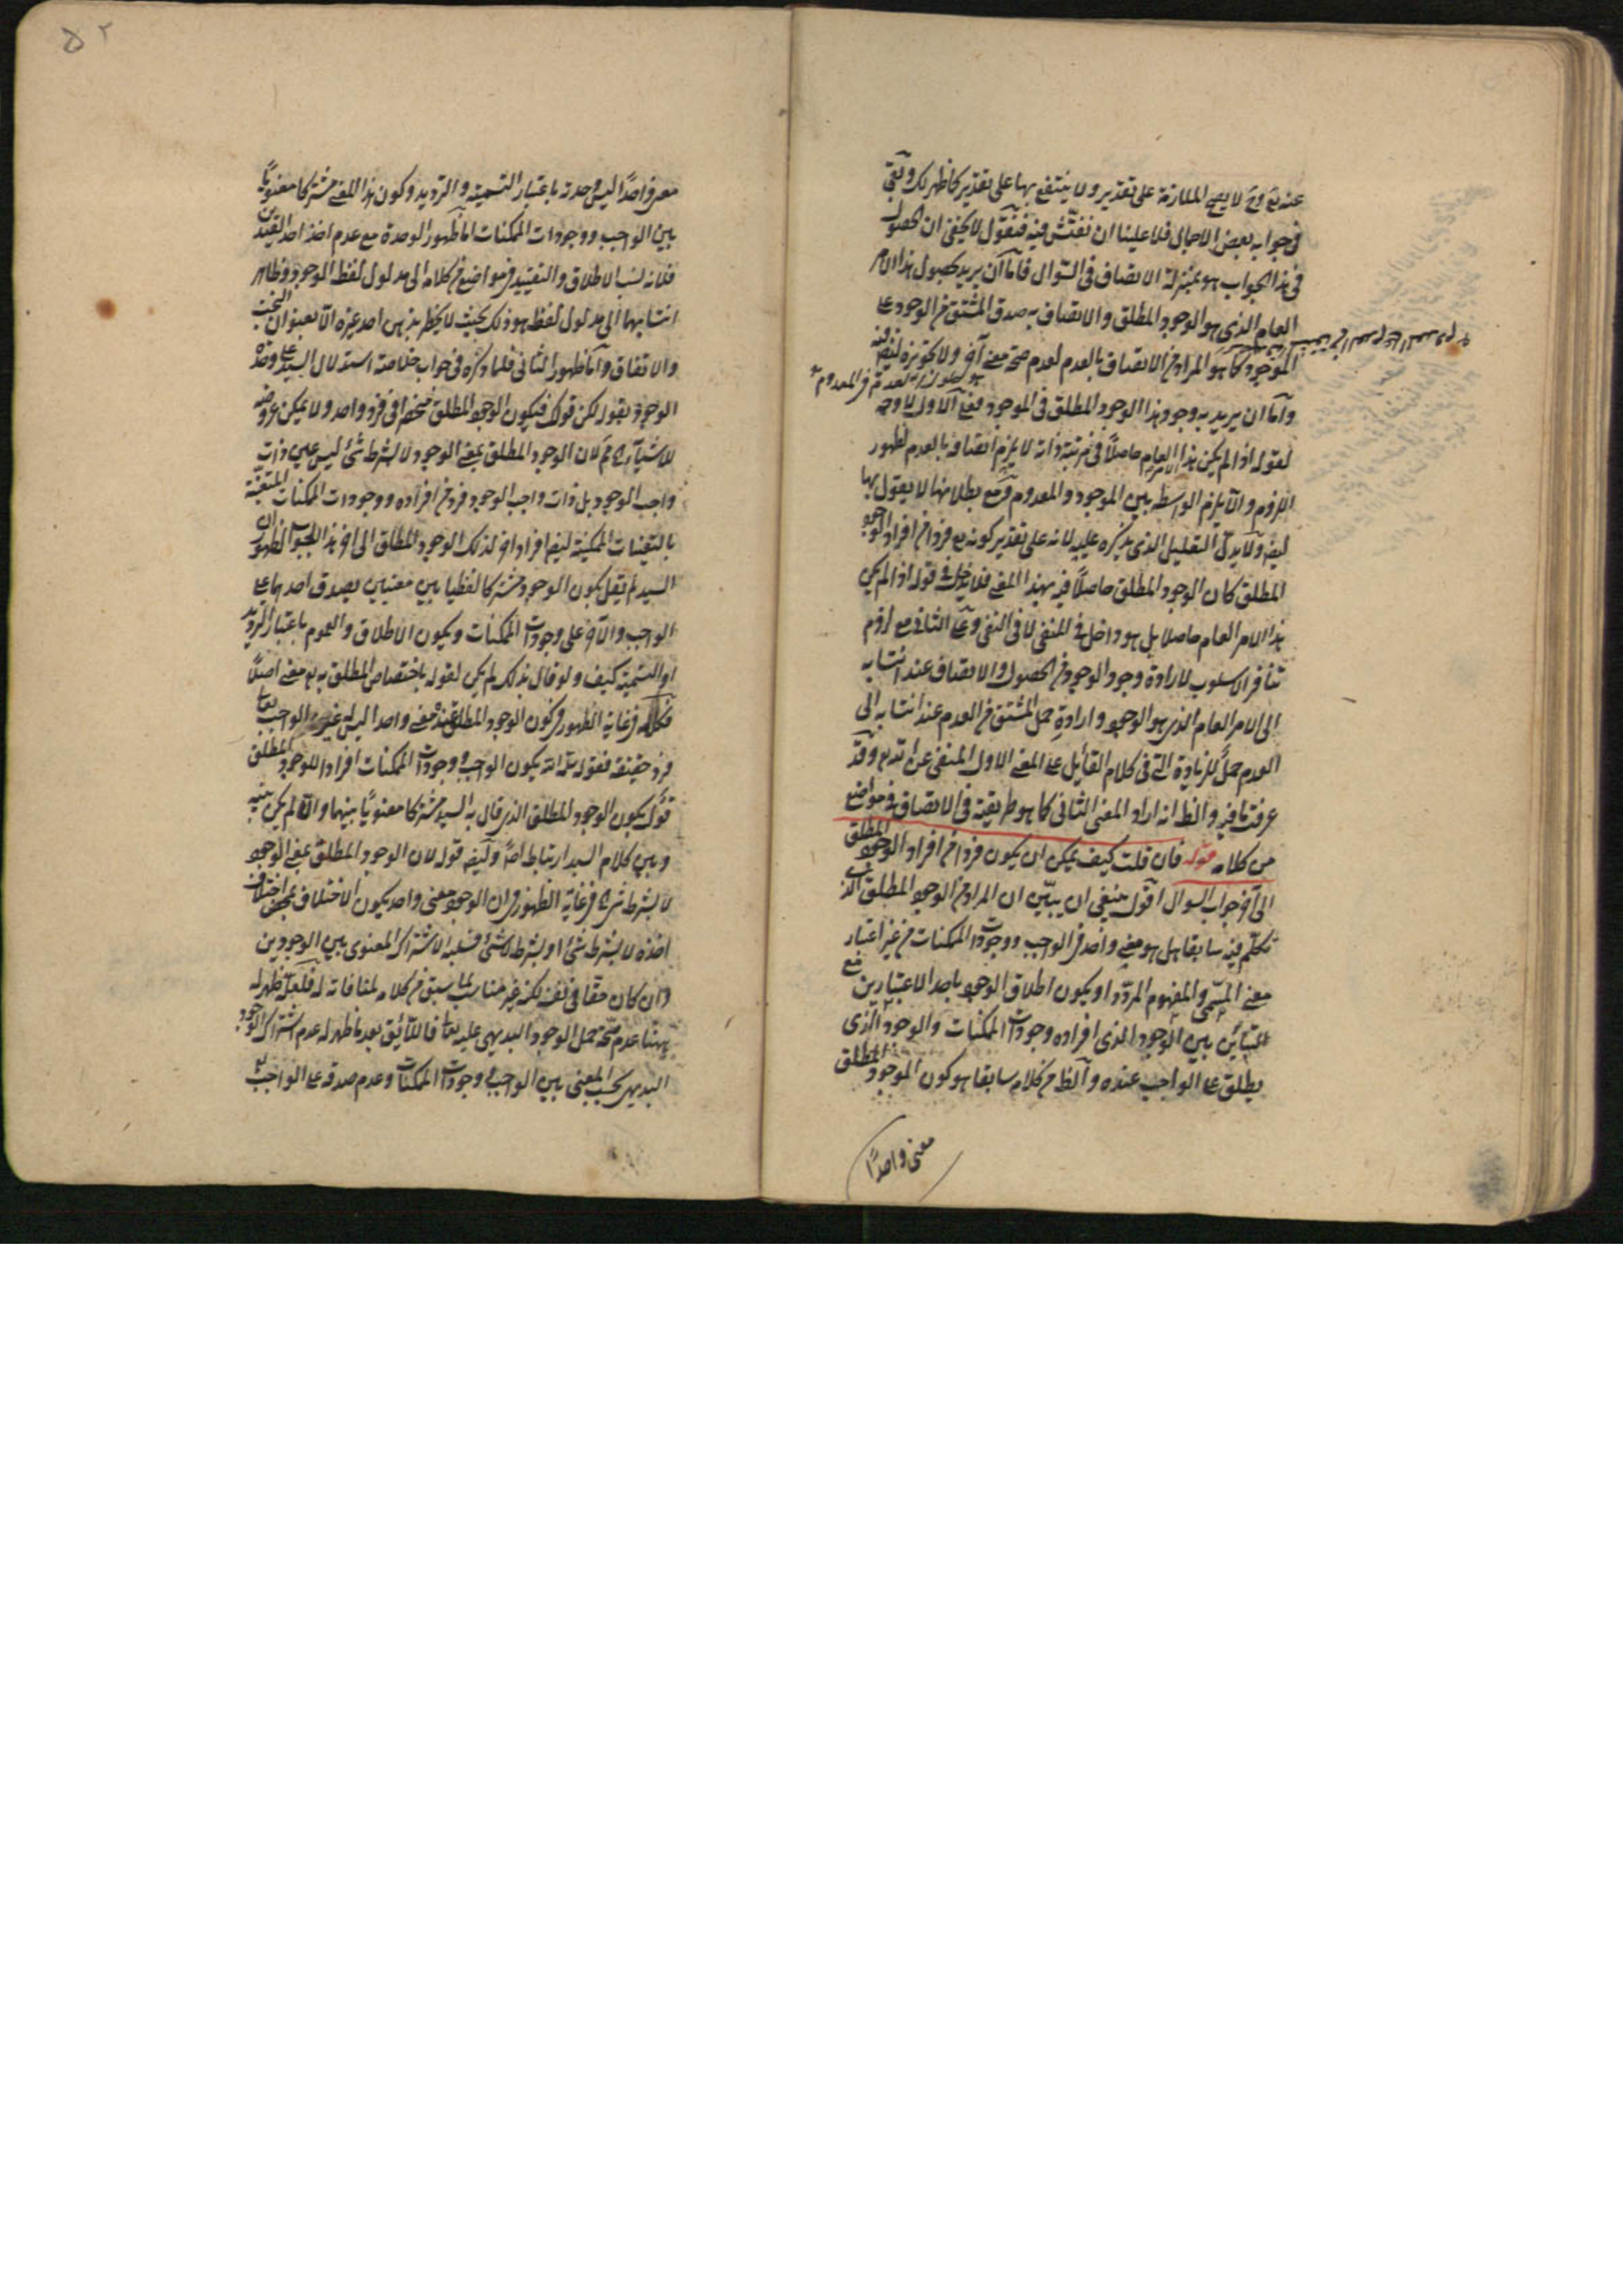 عنه تع وح لا يصح الملازمة على تقدير ولا ينتفع بها على تقدير كما ظهر لك وبقى
فى جوابه بعض الاجمال فلا علينا ان نفتش فيه فنقول لا يخفى ان الحصول
فى هذا الجواب هو بمنزلة الاتصاف فى السؤال فاما ان يريد بحصول هذا الامر
العام الذى هو الوجود المطلق والاتصاف به صدق المشتق من الوجود على
الموجود كما هو المراد من الاتصاف بالعدم لعدم صحة معنى آخر ولا تجويزه ليفه
واما ان يريد به وجود هذا الوجود المطلق فى الموجود فعلى الاول لا وجه
لقوله اذا لم يكن هذا العام حاصلًا فى مرتبة ذاته لا يلزم اتصافه بالعدم لظهور
اللزوم والا يلزم الواسطة بين الموجود والمعدوم ومع بطلانها لا يقول بها
ولا يدل التعليل الذى يذكره عليه لانه على تقدير كونه تع فردا من افراد الوجود
المطلق كان الوجود المطلق حاصلًا فيه بهذا المعنى فلا يدخل فى قوله اذا لم يكن
هذا الامر العام حاصلا بل هو داخل فى المنفى لا فى النفى وعلى الثانى مع لزوم
تنافر الاسلوب لارادة وجود الوجود من الحصول والاتصاف عند انتسابه
الى الامر العام الذى هو الوجود وارادة حمل المشتق من العدم عند انتسابه الى
العدم حمل للزيادة التى فى كلام القائل على المعنى الاول المنفى عن الله تع وقد
عرفت ما فيه والظ انه اراد المعنى الثانى كما هو طريقته فى الاتصاف فى مواضع
من كلامه قوله فان قلت كيف يمكن ان يكون فردا من افراد الوجود المطلق
الى آخر جواب السوال اقول ينبغى ان يبين ان المراد من الوجود المطلق الذى
تكلم فيه سابقا هل هو معنى واحد فى الواجب ووجودات الممكنات من غير اعتبار
معنى المسمى والمفهوم المردد او يكون اطلاق الوجود باحد الاعتبارين مع
التباين بين الوجود الذى افراده وجودات الممكنات والوجود الذى
يطلق على الواجب عنده والظ من كلامه سابقا هو كون الموجود المطلق
معنى واحدًا
۵۲
بين الواجب ووجودات الممكنات اما ظهور الوحدة مع عدم اخذ احد القيدين
فلانه نسب الاطلاق والتقييد فى مواضع من كلامه الى مدلول لفظ الوجود وظاهر
انتسابهما الى مدلول لفظ هو ذلك بحيث لا يخطر بذهن احد غيره الا بعنوان البخت
والاتفاق واما ظهور الثانى فلما ذكره فى جواب خلاصة استدلال السيد على وحدة
الوجود بقوله لكن قولك فيكون الوجود المطلق منحصرا فى فرد واحد ولا يمكن عروضه
للاشياء مم لان الوجود المطلق بمعنى الوجود لا بشرط شئ ليس عين ذات
واجب الوجود بل ذات واجب الوجود فرد من افراده ووجودات الممكنات المتعينة
بالتعينات الممكنية ليفه افراد اخر لذلك الوجود المطلق الى آخر هذا الجواب لظهور ان
السيد لم يقل بكون الوجود مشتركا لفظيا بين معنيين يصدق احدهما على
الواجب والآخر على وجودات الممكنات ويكون الاطلاق والعموم باعتبار الترديد
او التسمية كيف ولو قال بذلك لم يكن لقوله باختصاص المطلق به تع معنى اصلًا
فكلامه فى غاية الظهور فى كون الوجود المطلق عنده معنى واحدا ليس له غير الواجب تعا
فرد حقيقة فقوله يكون الواجب ووجودات الممكنات افرادا للوجود المطلق
قول بكون الوجود المطلق الذى قال به السيد مشتركا معنويًا بينهما والا لم يكن بينه
وبين كلام السيد ارتباط اصلا وليفه قوله لان الوجود المطلق بمعنى الوجود
لا بشرط شئ فى غاية الظهور فى ان الوجود معنى واحد يكون الاختلاف بمحض اختلاف
اخذه لا بشرط شئ او بشرط لا شئ فسلبه الاشتراك المعنوى بين الوجودين
وان كان حقا فى نفسه لكنه غير مناسب لما سبق من كلامه لمنافاته له فلعله ظهر له
ههنا عدم صحة حمل الوجود البديهى عليه تعا فاللائق بعد ما ظهر له عدم اشتراك الوجود
البديهى بحسب المعنى بين الواجب ووجودات الممكنات وعدم صدقه على الواجب تع